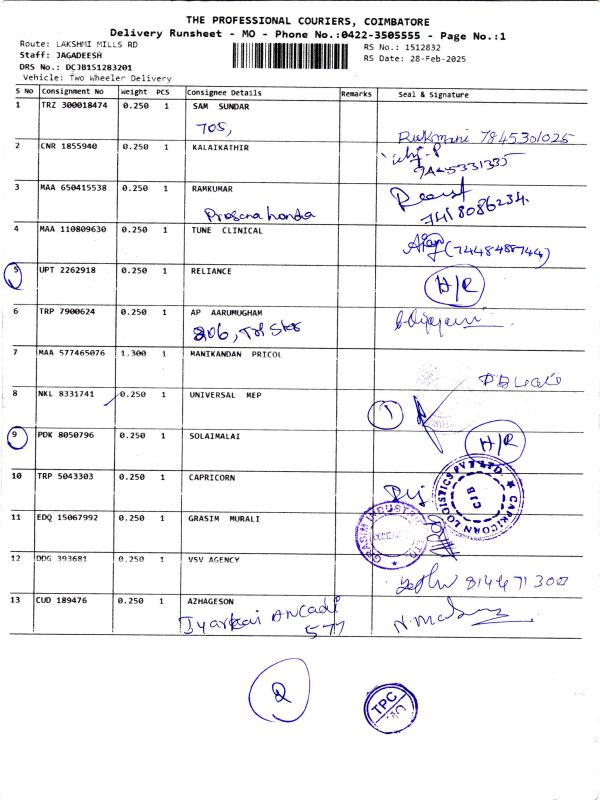 THE PROFESSIONAL COURIERS, COIMBATORE
Delivery Runsheet - MO - Phone No.:0422-3505555 - Page No.:1
Route: LAKSHMI MILLS RD
Staff: JAGADEESH
DRS No.: DCJB151283201
Vehicle: Two Wheeler Delivery
RS No.: 1512832
RS Date: 28-Feb-2025
S No Consignment No Weight PCS Consignee Details Remarks Seal & Signature
1 TRZ 300018474 0.250 1 SAM SUNDAR
705, Rukmani 7845301025
2 CNR 1855940 0.250 1 KALAIKATHIR
3 MAA 650415538 0.250 1 RAMKUMAR
Prasana honda 7418086234.
4 MAA 110809630 0.250 1 TUNE CLINICAL
(7448488744)
5 UPT 2262918 0.250 1 RELIANCE
H/R
6 TRP 7900624 0.250 1 AP AARUMUGHAM
206,
7 MAA 577465076 1.300 1 MANIKANDAN PRICOL
8 NKL 8331741 0.250 1 UNIVERSAL MEP
1
9 PDK 8050796 0.250 1 SOLAIMALAI
H/R
10 TRP 5043303 0.250 1 CAPRICORN
CAPRICORN LOGISTICS PVT LTD. CJB
11 EDQ 15067992 0.250 1 GRASIM MURALI
GRASIM INDUSTRIES LTD
12 DDG 393681 0.250 1 VSV AGENCY
13 CUD 189476 0.250 1 AZHAGESON
Iyarkai Ancadi
577
Q
TPC